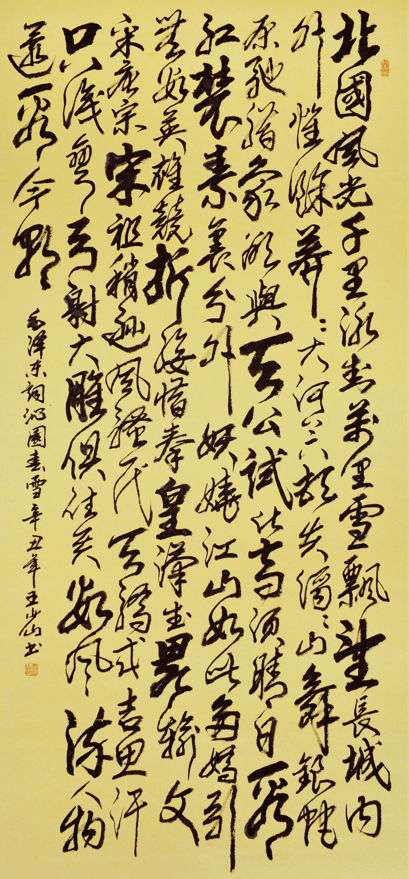 北國風光千里冰封萬里雪飄望長城内
外惟餘莽莽大河上下頓失滔滔山舞銀蛇
原馳腊象欲與天公試比高須晴日看
紅裝素裹分外妖嬈江山如此多嬌引
無數英雄競折腰惜秦皇漢武畧輸文
采唐宗宋祖稍遜風騷一代天驕成吉思汗
只識彎弓射大雕俱往矣數風流人物
還看今朝
毛澤東詞沁園春雪辛丑年王少山书